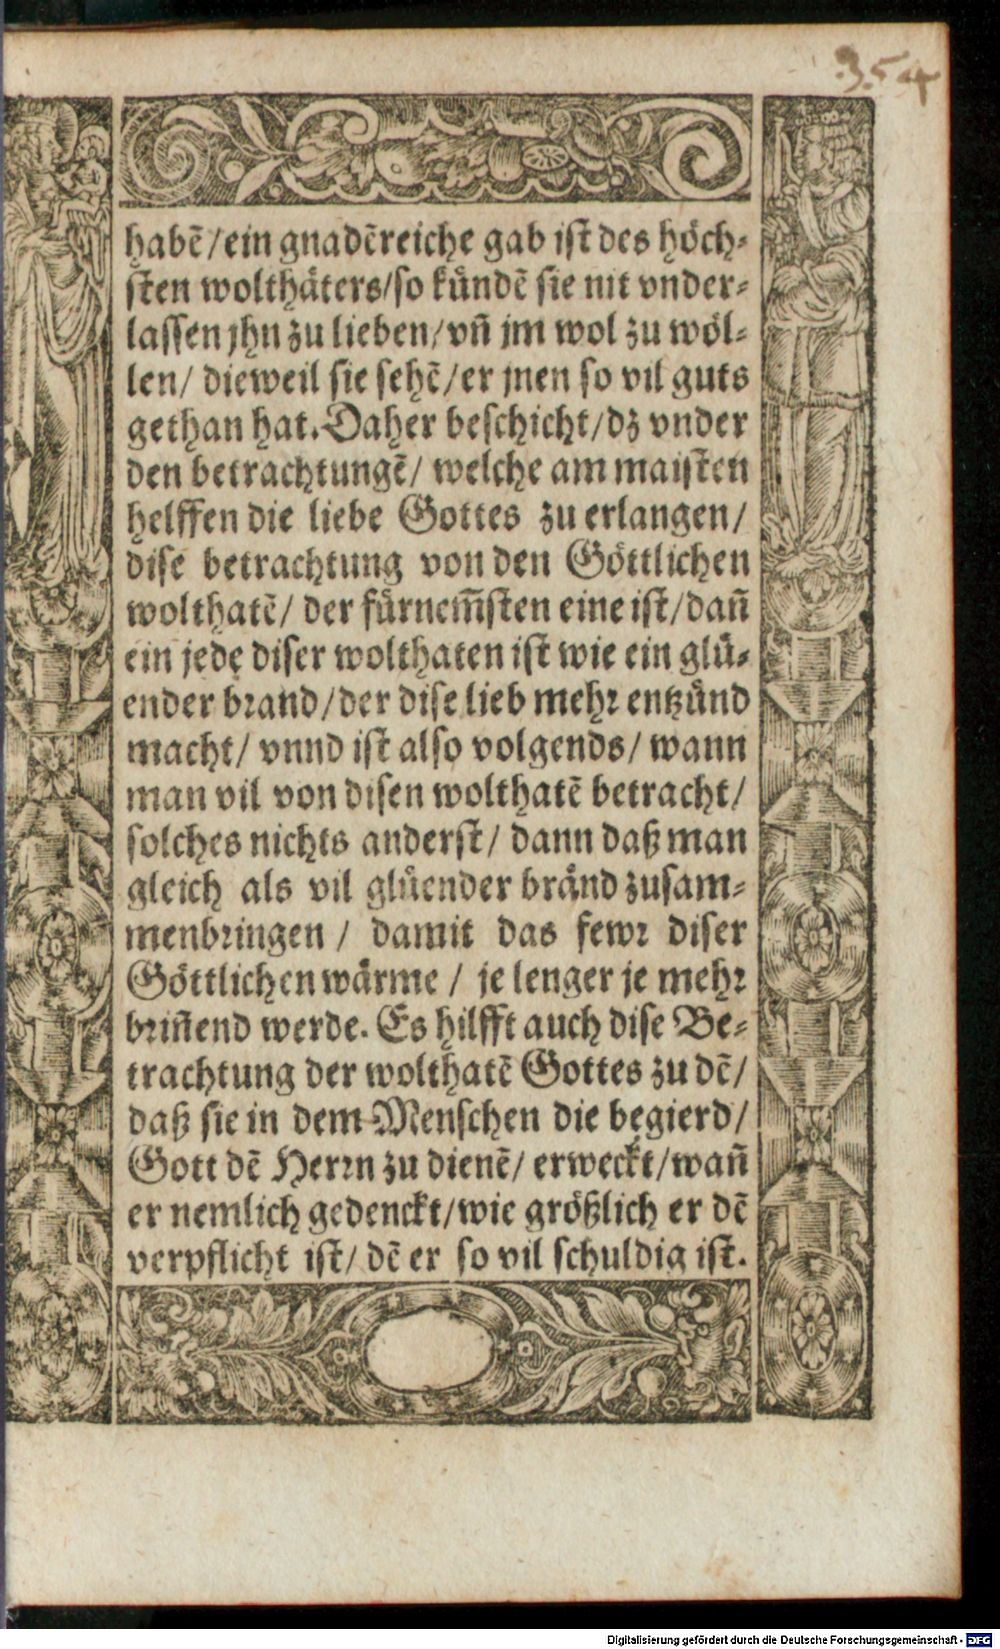 354
habē/ein gnadēreiche gab ist des höch-
sten wolthäters/so kündē sie nit vnder-
lassen jhn zu lieben/vñ jm wol zu wöl-
len/ dieweil sie sehē/er jnen so vil guts
gethan hat. Daher beschicht/dz vnder
den betrachtungē/ welche am maisten
helffen die liebe Gottes zu erlangen/
dise betrachtung von den Göttlichen
wolthatē/ der fürnem̄sten eine ist/dañ
ein jede diser wolthaten ist wie ein glü-
ender brand/der dise lieb mehr entzünd
macht/ vnnd ist also volgends/ wann
man vil von disen wolthatē betracht/
solches nichts anderst/ dann daß man
gleich als vil glüender bränd zusam-
menbringen / damit das fewr diser
Göttlichen wärme / je lenger je mehr
briñend werde. Es hilfft auch dise Be-
trachtung der wolthatē Gottes zu dē/
daß sie in dem Menschen die begierd/
Gott dē Herrn zu dienē/ erweckt/wañ
er nemlich gedenckt/wie größlich er dē
verpflicht ist/ dē er so vil schuldig ist.
Digitalisierung gefördert durch die Deutsche Forschungsgemeinschaft - DFG